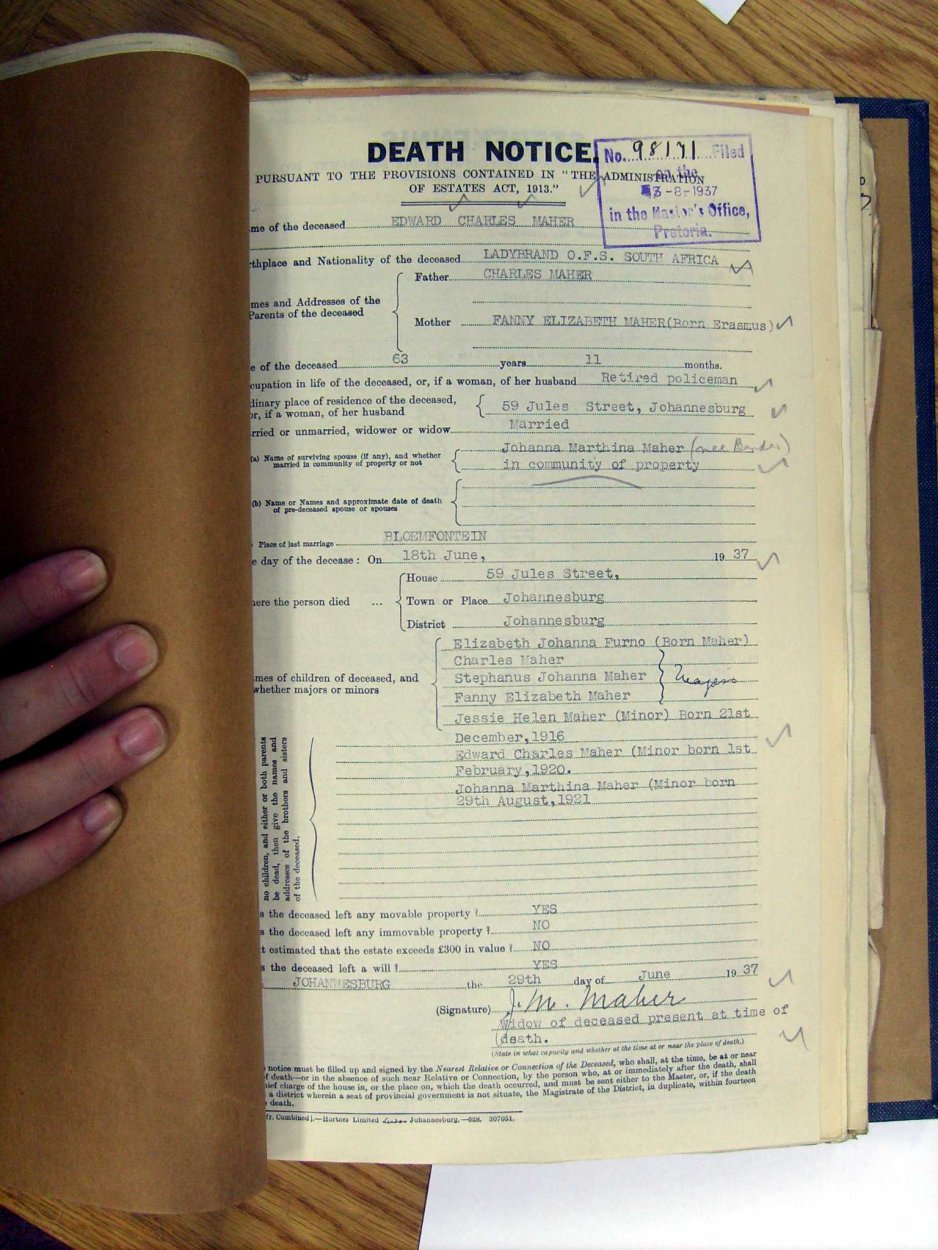 DEATH NOTICE.
PURSUANT TO THE PROVISIONS CONTAINED IN "THE ADMINISTRATION
OF ESTATES ACT, 1913."
No. 98171 Filed
on the
3-8-1937
in the Master's Office,
Pretoria.
me of the deceased EDWARD CHARLES MAHER
thplace and Nationality of the deceased LADYBRAND O.F.S. SOUTH AFRICA
Father CHARLES MAHER
mes and Addresses of the
Parents of the deceased
Mother FANNY ELIZABETH MAHER(Born Erasmus)
e of the deceased 63 years 11 months.
cupation in life of the deceased, or, if a woman, of her husband Retired policeman
dinary place of residence of the deceased,
or, if a woman, of her husband
59 Jules Street, Johannesburg
rried or unmarried, widower or widow Married
(a) Name of surviving spouse (if any), and whether
married in community of property or not
Johanna Marthina Maher (nee
in community of property
(b) Name or Names and approximate date of death
of pre-deceased spouse or spouses
Place of last marriage BLOEMFONTEIN
e day of the decease: On 18th June, 19 37
House 59 Jules Street,
here the person died ... Town or Place Johannesburg
District Johannesburg
mes of children of deceased, and
whether majors or minors
Elizabeth Johanna Furno (Born Maher)
Charles Maher
Stephanus Johanna Maher Majors
Fanny Elizabeth Maher
Jessie Helen Maher (Minor) Born 21st
December,1916
Edward Charles Maher (Minor born 1st
February,1920.
Johanna Marthina Maher (Minor born
29th August,1921
no children, and either or both parents
be dead, then give the names and
addresses of the brothers and sisters
of the deceased.
s the deceased left any movable property? YES
s the deceased left any immovable property? NO
t estimated that the estate exceeds £300 in value? NO
s the deceased left a will? YES
JOHANNESBURG the 29th day of June 19 37
(Signature) J. M. Maher
Widow of deceased present at time of
death.
(State in what capacity and whether at the time at or near the place of death.)
notice must be filled up and signed by the Nearest Relative or Connection of the Deceased, who shall, at the time, be at or near
f death—or in the absence of such near Relative or Connection, by the person who, at or immediately after the death, shall
hief charge of the house in, or the place on, which the death occurred, and must be sent either to the Master, or, if the death
a district wherein a seat of provincial government is not situate, the Magistrate of the District, in duplicate, within fourteen
death.
fr. Combined).—Hortors Limited Johannesburg.—628. 307051.